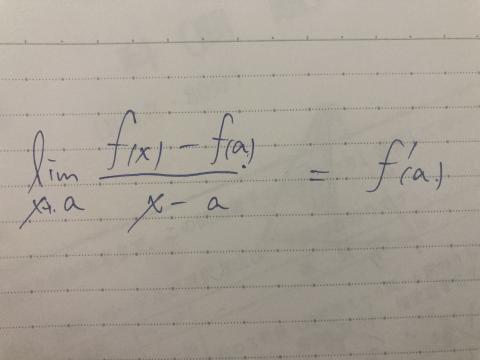 lim x→a (f(x) − f(a)) / (x − a) = f′(a)